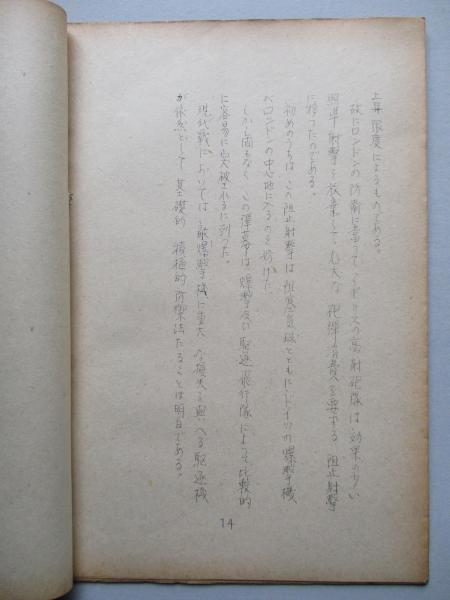 上昇限度によるものである。
故にロンドンの防衛に当ってイギリスの高射砲隊は効果の少い
照準射撃を放棄して、尨大な砲弾消費を要する阻止射撃
に移ったのである。
初めのうちは、この阻止射撃は阻塞気球とともにドイツの爆撃機
がロンドンの中心地に入るのを妨げた。
しかし間もなく、この弾幕は爆撃及び駆逐飛行隊によって比較的
に容易に突破されるに到った。
現代戦においては、敵爆撃機に重大な損失を与へる駆逐機
が依然として基礎的積極的防禦法たることは明白である。
14